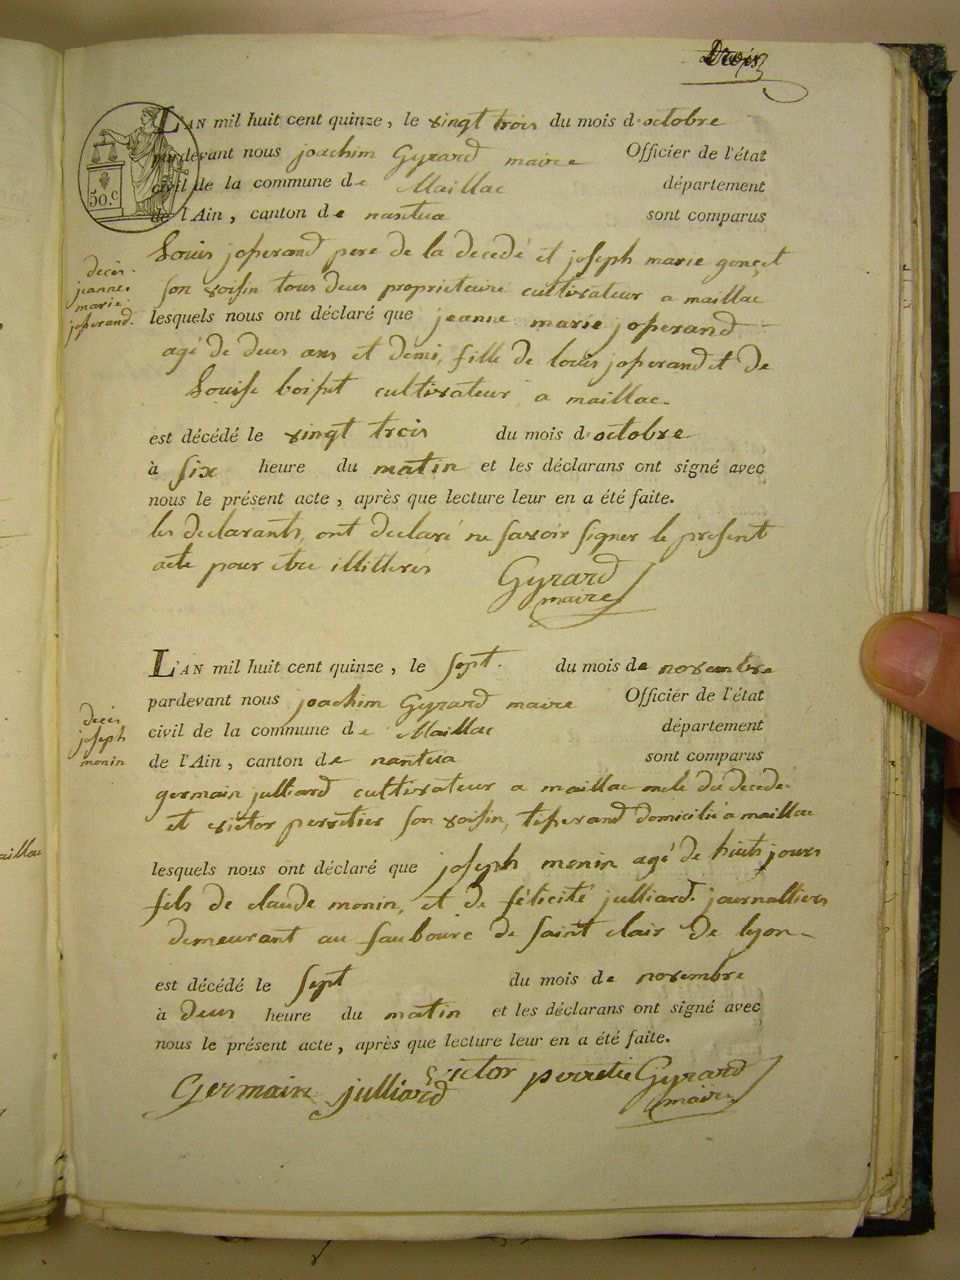 50.c
L'AN mil huit cent quinze, le vingt trois du mois d'octobre
pardevant nous joachim Gyrard maire Officier de l'état
civil de la commune de Maillac département
de l'Ain, canton de nantua sont comparus
décès
jeanne
marie
joperand.
Louis joperand pere de la decedé et joseph marie gonçet
son voisin tous deus proprieteure cultivateur a maillac
lesquels nous ont déclaré que jeanne marie joperand
agé de deus ans et demi, fille de louis joperand et de
Louise boisset cultivateur a maillac.
est décédé le vingt trois du mois d'octobre
à six heure du matin et les déclarans ont signé avec
nous le présent acte, après que lecture leur en a été faite.
les declarants, ont declaré ne savoir signer le present
acte pour etre illitteres Gyrard
maire
L'AN mil huit cent quinze, le sept. du mois de novembre
pardevant nous joachim Gyrard maire Officier de l'état
civil de la commune de Maillac département
de l'Ain, canton de nantua sont comparus
décès
joseph
monin
germain julliard cultivateur a maillac oncle du decedé
et victor perretier son voisin, domicilié a maillac
lesquels nous ont déclaré que joseph monin agé de huit jours
fils de claude monin, et de félicité julliard. journalliers
demeurant au faubourc de saint clair de lyon
est décédé le sept du mois de novembre
à deus heure du matin et les déclarans ont signé avec
nous le présent acte, après que lecture leur en a été faite.
Germain julliard victor perretie Gyrard
maire
aillac